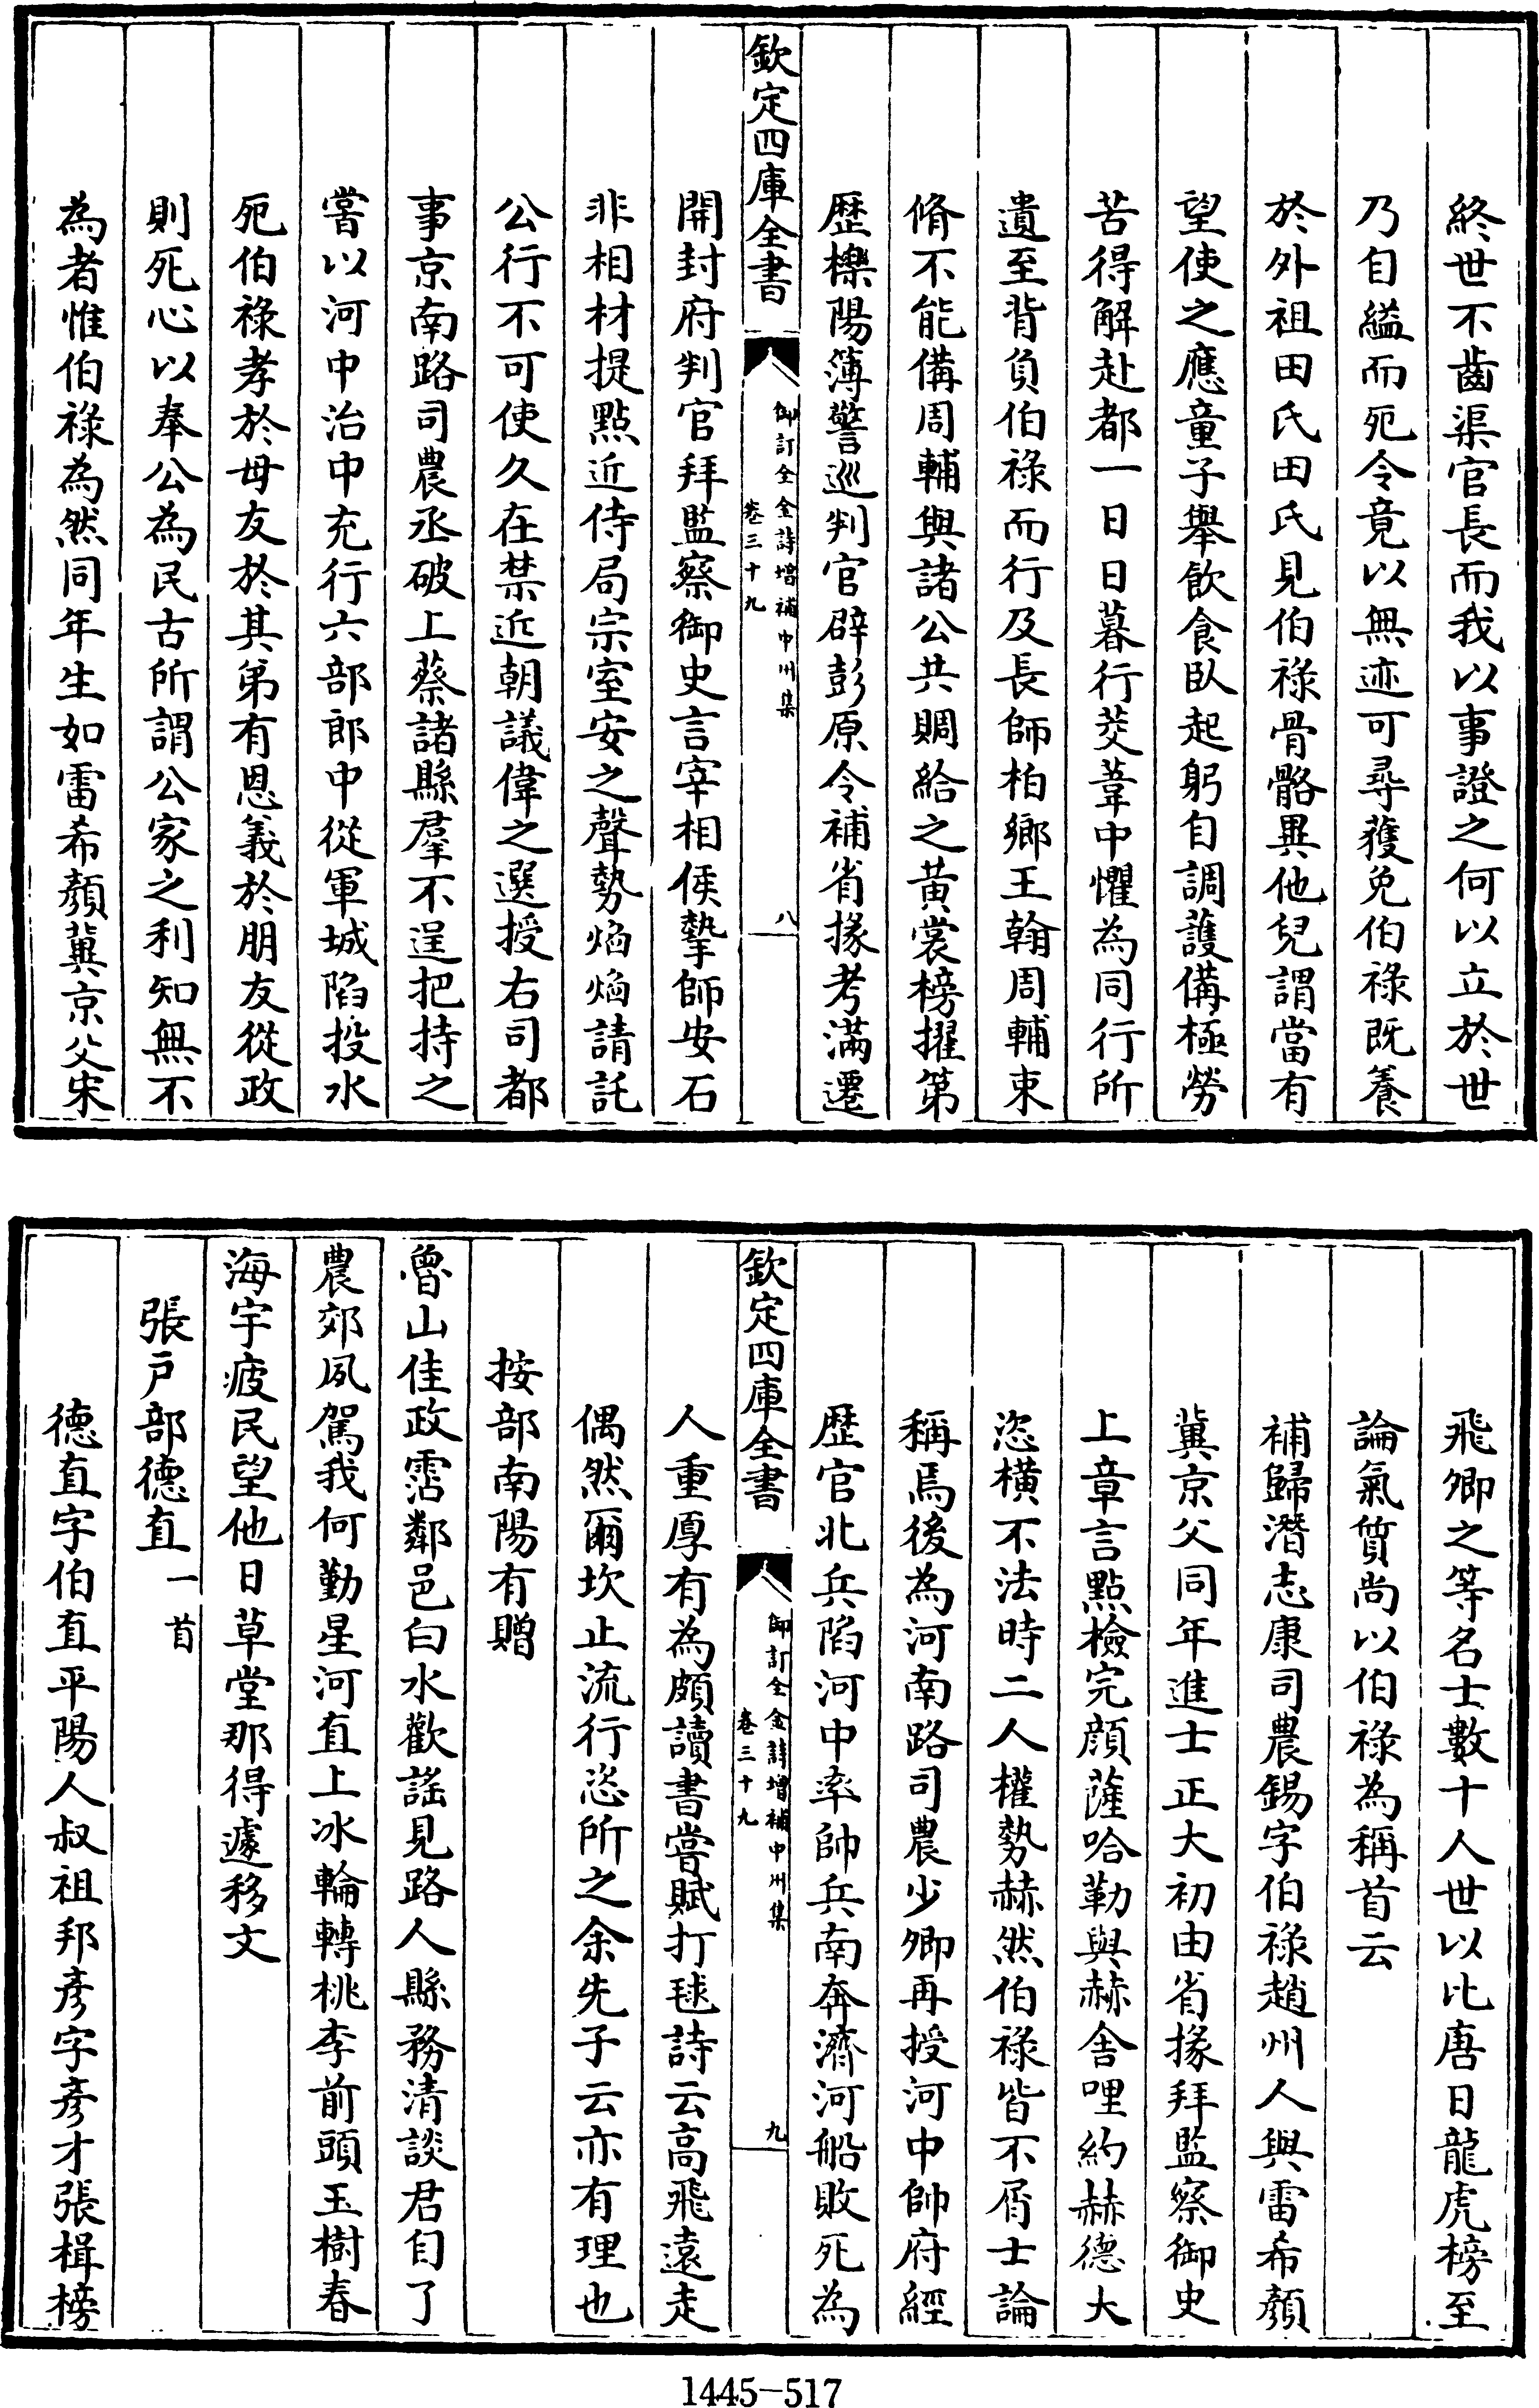 終世不齒渠官長而我以事證之何以立於世
乃自縊而死令竟以無迹可尋獲免伯祿既養
於外祖田氏田氏見伯祿骨骼異他兒謂當有
望使之應童子舉飲食臥起躬自調護備極勞
苦得解赴都一日日暮行茭葦中懼為同行所
遺至背負伯祿而行及長師柏鄉王翰周輔束
脩不能備周輔與諸公共賙給之黃裳榜擢第
歴櫟陽簿警巡判官辟彭原令補省掾考滿遷
欽定四庫全書
御訂全金詩增補中州集
卷三十九
八
開封府判官拜監察御史言宰相侯摯師安石
非相材提點近侍局宗室安之聲勢焰焰請託
公行不可使久在禁近朝議偉之選授右司都
事京南路司農丞破上蔡諸縣羣不逞把持之
嘗以河中治中充行六部郎中從軍城陷投水
死伯祿孝於母友於其弟有恩義於朋友從政
則死心以奉公為民古所謂公家之利知無不
為者惟伯祿為然同年生如雷希顏冀京父宋
飛卿之等名士數十人世以比唐日龍虎榜至
論氣質尚以伯祿為稱首云
補歸潛志康司農錫字伯祿趙州人與雷希顏
冀京父同年進士正大初由省掾拜監察御史
上章言點檢完顏薩哈勒與赫舍哩約赫德大
恣横不法時二人權勢赫然伯祿皆不屑士論
稱焉後為河南路司農少卿再授河中帥府經
歴官北兵陷河中率帥兵南奔濟河船敗死為
欽定四庫全書
御訂全金詩增補中州集
卷三十九
九
人重厚有為頗讀書嘗賦打毬詩云高飛遠走
偶然爾坎止流行恣所之余先子云亦有理也
按部南陽有贈
魯山佳政霑鄰邑白水歡謡見路人縣務清談君自了
農郊夙駕我何勤星河直上冰輪轉桃李前頭玉樹春
海宇疲民望他日草堂那得遽移文
張戶部德直一首
德直字伯直平陽人叔祖邦彥字彥才張楫榜
1445-517